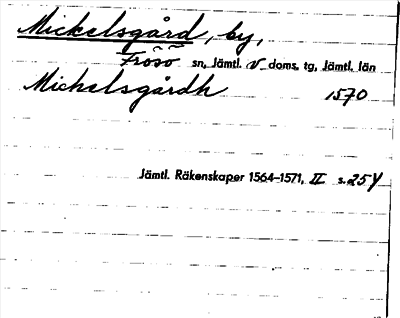 Mickelsgård, by,
Frösö sn, Jämtl. V doms. tg, Jämtl. län
Michelsgårdh 1570
Jämtl. Räkenskaper 1564–1571, II s. 254